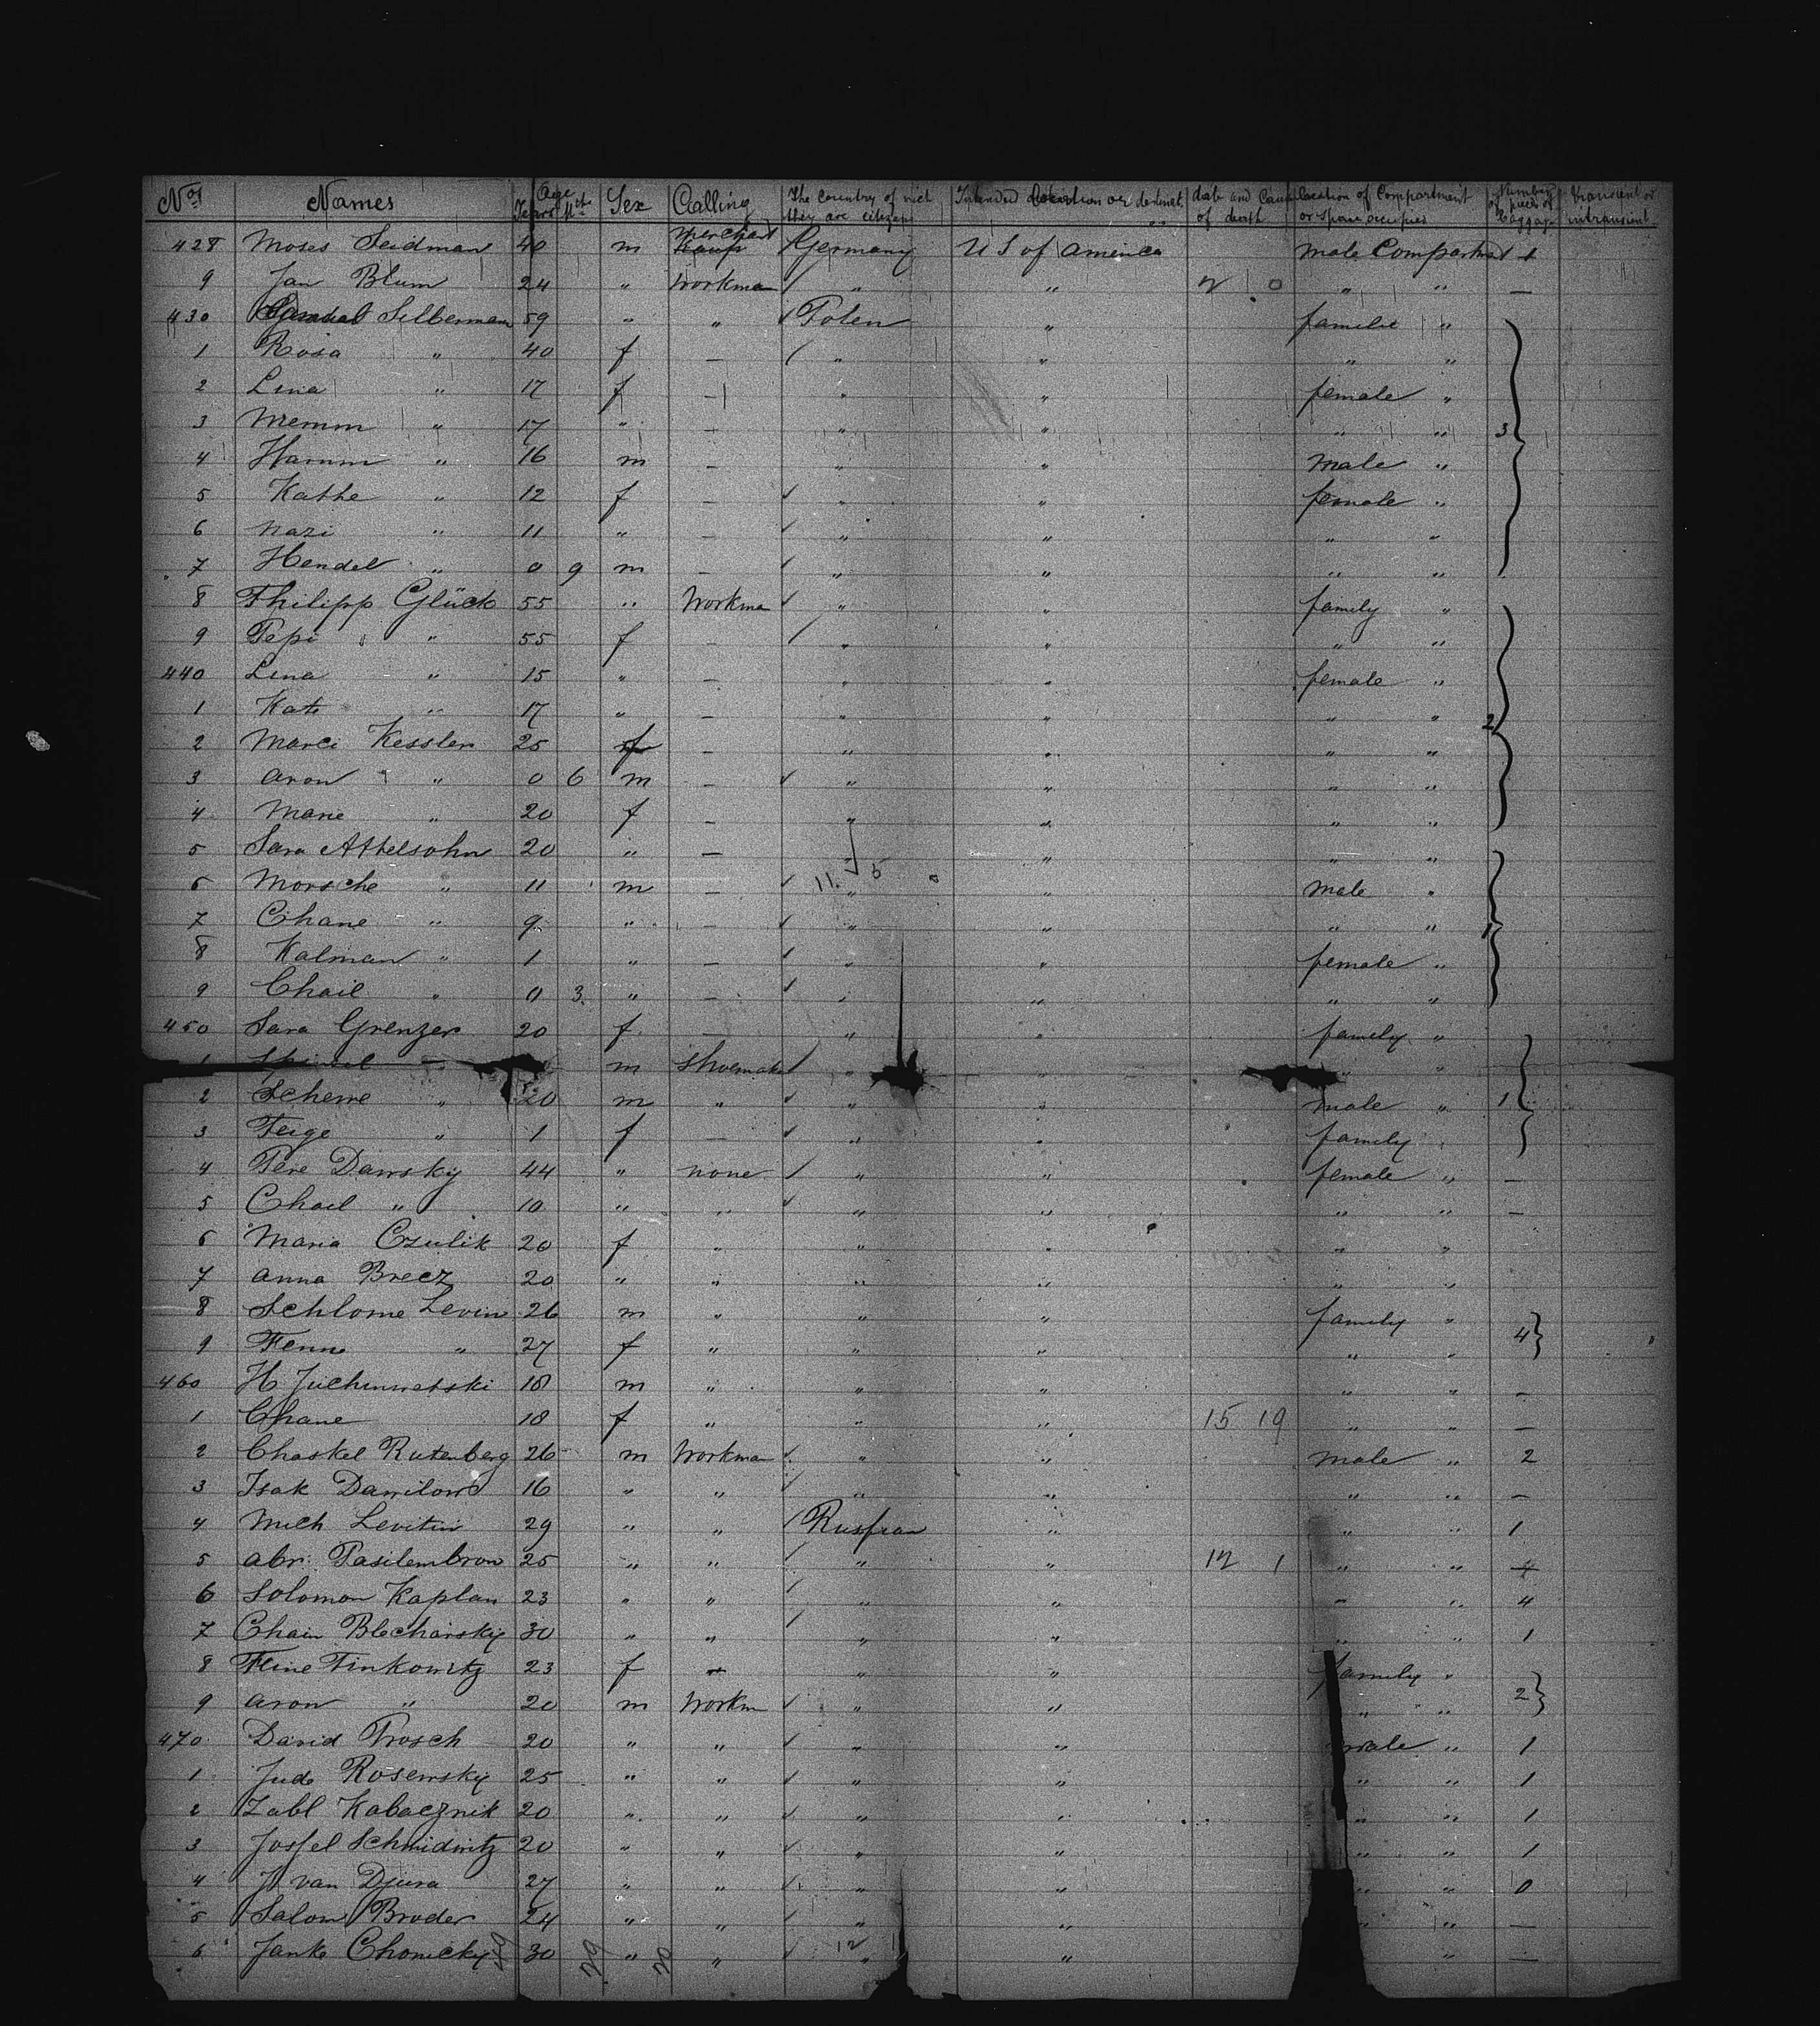 Nos Names Age Years Mths Sex Calling The country of wich they are citizens Intended destination or destinat. date and Cause of death Location of Compartment or space occupied Number of pieces of Baggage transient or intransient
428 Moses Seidman 40 m merchant Germany U S of America male Compartm 1
9 Jan Blum 24 " workman " " " " —
430 Silberman 59 " " Polen " familie "
1 Rosa " 40 f — " " " "
2 Lina " 17 f — " " female "
3 Memm " 17 " — " " " " 3
4 Hamm " 16 m — " " male "
5 Kathe " 12 f — " " female "
6 Nazi " 11 " — " " " "
7 Hendel " 0 9 m — " " " "
8 Philipp Glück 55 " workma " " family "
9 Pepi " 55 f — " " " "
440 Lina " 15 " — " " female "
1 Kati " 17 " — " " " " 2
2 Marci Kessler 25 f — " " " "
3 Aron " 0 6 m — " " " "
4 Marie " 20 f — " " " "
5 Sara Attelsohn 20 " — " " " "
6 Morsche " 11 m — 11. 5 " " male "
7 Chane " 9 " — " " " " 1
8 Kalman " 1 " — " " female "
9 Chail " 0 3 " — " " " "
450 Sara Grenzer 20 f — " " family "
1 m shoemake " " " "
2 Scheme " 20 m " " " male " 1
3 Feige " 1 f — " " family "
4 Pere Dansky 44 " none " " female " —
5 Chail " 10 " " " " " " —
6 Maria Czulik 20 f " " " " "
7 Anna Brecz 20 " " " " " "
8 Schlome Levin 26 m " " " family " 4
9 Fenne " 27 f " " " " "
460 H 18 m " " " " " —
1 Chane 18 f " " " 15 19 " " —
2 Chaskel Rutenberg 26 m workman " " male " 2
3 Isak Danilow 16 " " " " " " —
4 Mich Levitin 29 " " Russian " " " 1
5 Abr. Pasilembrow 25 " " " " 12 1 " "
6 Solomon Kaplan 23 " " " " " " 4
7 Chain Blecharsky 30 " " " " " " 1
8 Fline Finkowitz 23 f — " " family " 2
9 Aron " 20 m workm " " " "
470 David Frosch 20 " " " " male " 1
1 Jude Rosewsky 25 " " " " " " 1
2 Zabl Kabacznik 20 " " " " " " 1
3 Jossel Schmidwitz 20 " " " " " " 1
4 Jvan Djura 27 " " " " " " 0
5 Salom Broder 24 " " " " " " —
6 Janko Chonicky 30 " " 12 " " " —